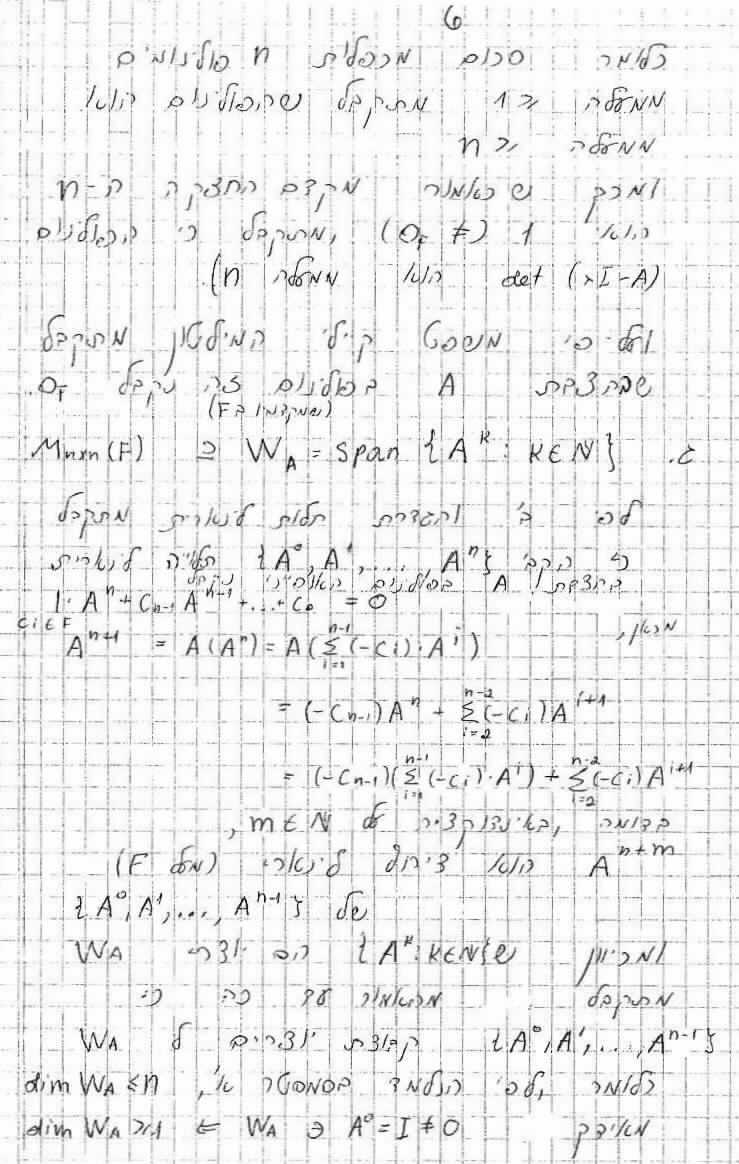 6
כלומר סכום מכפלות n פולינומים
ממעלה ≤ 1 מתקבל שהפולינום הוא
ממעלה ≤ n
ומכך שכאמור מקדם החזקה ה-n
הוא 1 (≠ 0_F), מתקבל כי הפולינום
det (λI-A) הוא ממעלה n).
ועל פי משפט קיילי המילטון מתקבל
שבהצבת A בפולינום זה נקבל 0_F.
(שמקדמיו ב F)
ג. M_{n×n}(F) ⊇ W_A = span {A^k : k∈N}
לפי ב' והגדרת תלות לינארית מתקבל
כי הקב' {A^0, A^1, ..., A^n} תלויה לינארית
בהצבת A בפולינום האופייני נקבל
1·A^n + c_{n-1} A^{n-1} + ... + c_0 = 0
c_i ∈ F
מכאן, A^{n+1} = A(A^n) = A(∑_{i=1}^{n-1} (-c_i)·A^i)
= (-c_{n-1})A^n + ∑_{i=2}^{n-2} (-c_i)A^{i+1}
= (-c_{n-1})(∑_{i=1}^{n-1} (-c_i)·A^i) + ∑_{i=2}^{n-2} (-c_i)A^{i+1}
בדומה, באינדוקציה על m∈N,
A^{n+m} הוא צירוף לינארי (מעל F)
של {A^0, A^1, ..., A^{n-1}}
ומכיוון ש{A^k : k∈N} הם יוצרי W_A
מתקבל מהאמור עד כה כי
{A^0, A^1, ..., A^{n-1}} קבוצת יוצרים ל W_A
כלומר, לפי הנלמד בסמסטר א', dim W_A ≤ n
מאידך A^0 = I ≠ 0 ∋ W_A ⇐ dim W_A ≥ 1